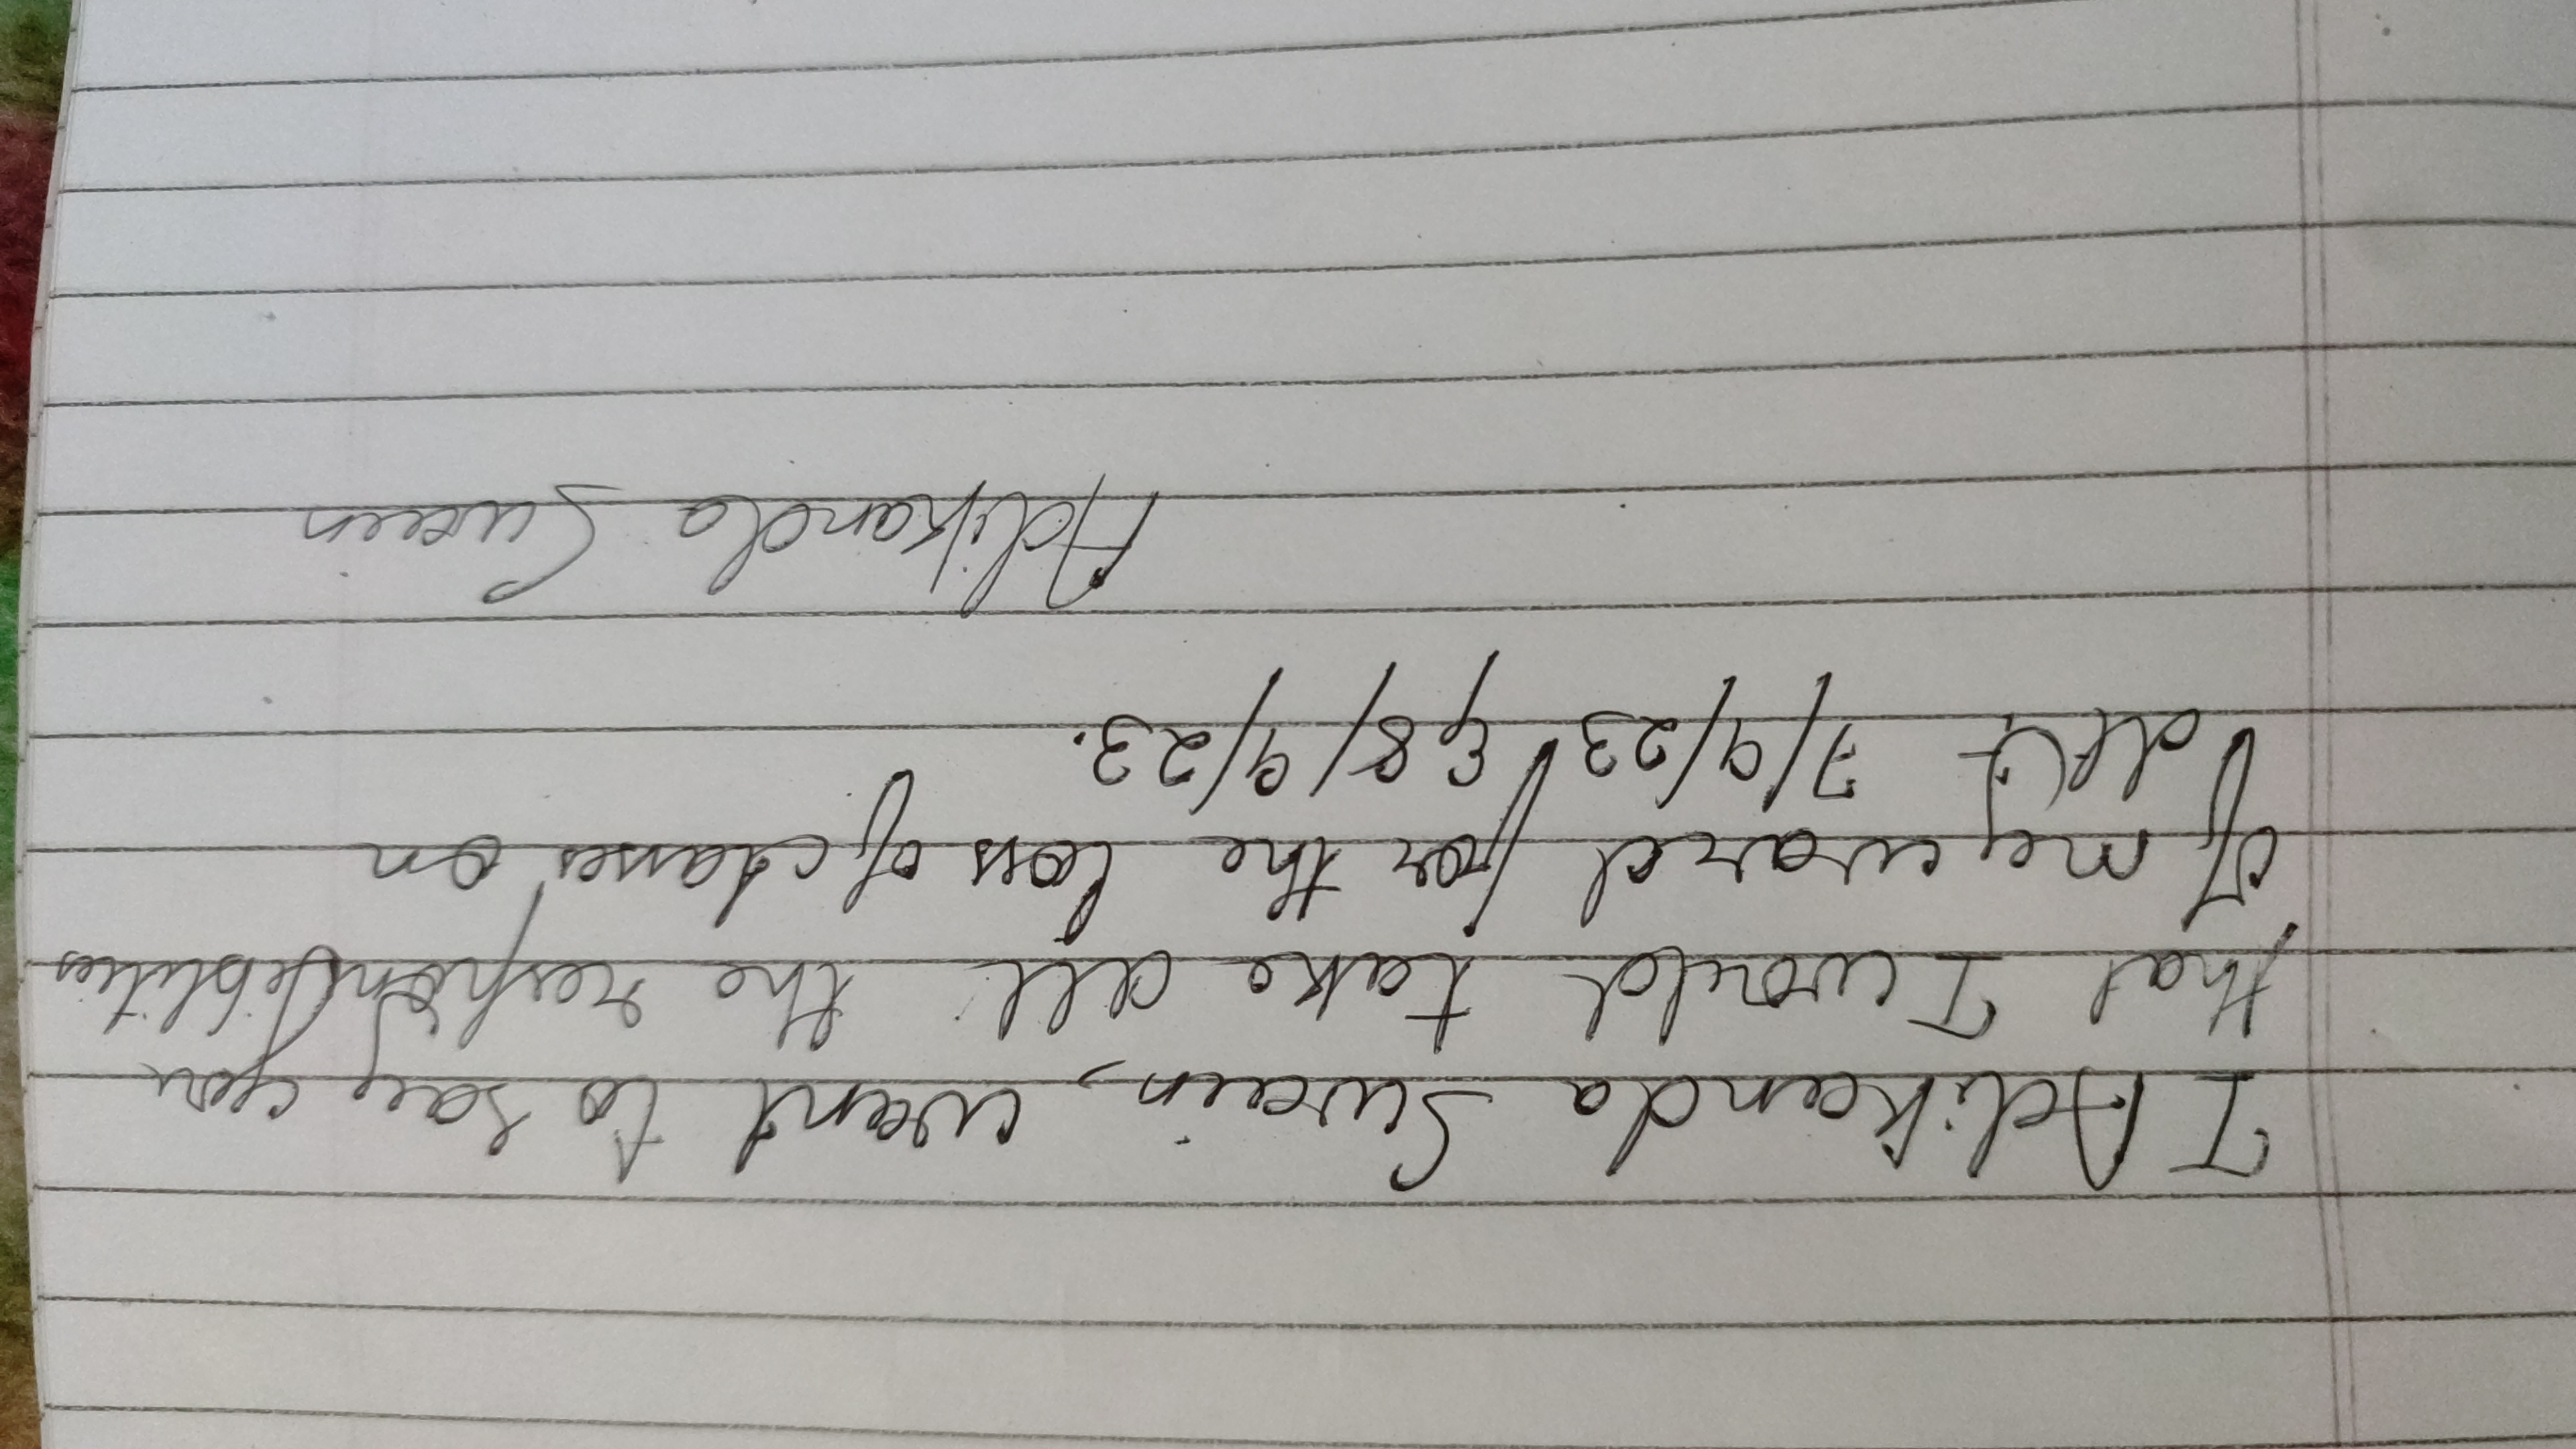 I Adikanda Swain, want to say you
that I would take all the responsiblities
of my ward for the loss of classes on
date 7/9/23 & 8/9/23.
Adikanda Swain